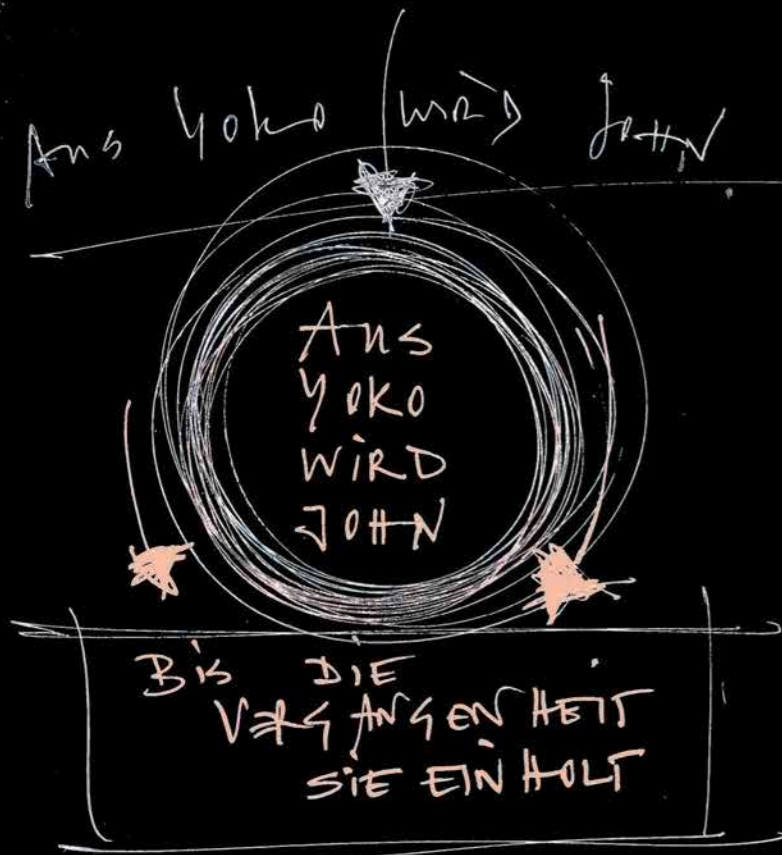 Aus Yoko wird JOHN
Aus
YOKO
WiRD
JOHN
Bis DIE
VERGANGENHEIT
SiE EINHOLT